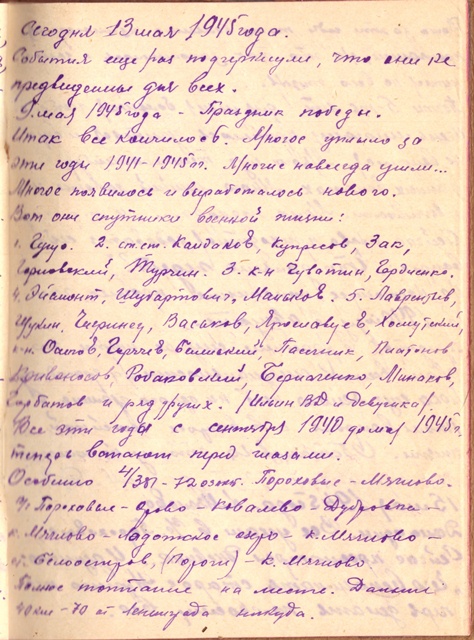 Сегодня 13 мая 1945 года.
События еще раз подчеркнули, что они не
предвиденны для всех.
9 мая 1945 года - Праздник победы.
Итак все кончилось. Многое уплыло за
эти годы 1941-1945 гг. Многие навсегда ушли...
Многое появилось и выработалось нового.
Вот они спутники военной жизни:
1. 2. ст. ст. Кандаков, Купресов, Зак,
Горловский, Тургин. 3. к-н Чуватин, Гордиенко.
4. Эйсмонт, Шубартович, Маньков. 5. Лаврентьев,
Щукин, Васьков, Ярославцев, Хомутский,
к-н. Осипов, Горячев, Бельский, Пасечник, Платонов
Кривоносов, Робаковский, Бермаченко, Минаков,
Горбатов и ряд других. / ВД и Девушка/.
Все эти годы с сентября 1940 до мая 1945 г,
теперь встают перед глазами.
Особенно Пороховые - Мяглово.
Пороховые - - Ковалево Дубровка -
Мяглово - Ладожское озеро - к. Мяглово -
Белоостров, (Пороги) - К. Мяглово
Полное топтание на месте. Дальше
40 км - 70 от Ленинграда никуда.